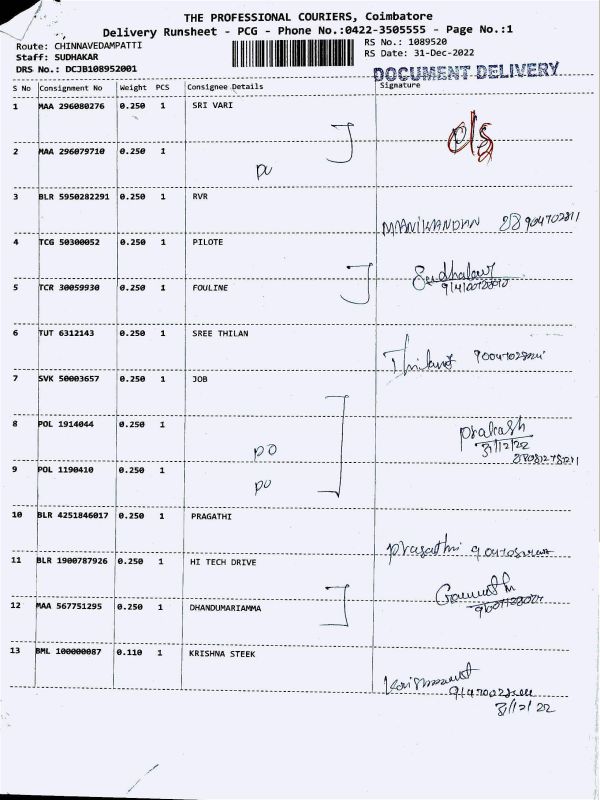 THE PROFESSIONAL COURIERS, Coimbatore
Delivery Runsheet - PCG - Phone No.:0422-3505555 - Page No.:1
Route: CHINNAVEDAMPATTI RS No.: 1089520
Staff: SUDHAKAR RS Date: 31-Dec-2022
DRS No.: DCJB108952001
DOCUMENT DELIVERY
S No Consignment No Weight PCS Consignee Details Signature
1 MAA 296080276 0.250 1 SRI VARI
2 MAA 296079710 0.250 1
3 BLR 5950282291 0.250 1 RVR
MANIKANDAN
4 TCG 50300052 0.250 1 PILOTE
5 TCR 30059930 0.250 1 FOULINE
6 TUT 6312143 0.250 1 SREE THILAN
7 SVK 50003657 0.250 1 JOB
8 POL 1914044 0.250 1 prakash
31/12/22
po
9 POL 1190410 0.250 1
po
10 BLR 4251846017 0.250 1 PRAGATHI
pragathi
11 BLR 1900787926 0.250 1 HI TECH DRIVE
12 MAA 567751295 0.250 1 DHANDUMARIAMMA
13 BML 100000087 0.110 1 KRISHNA STEEK
31/12/22